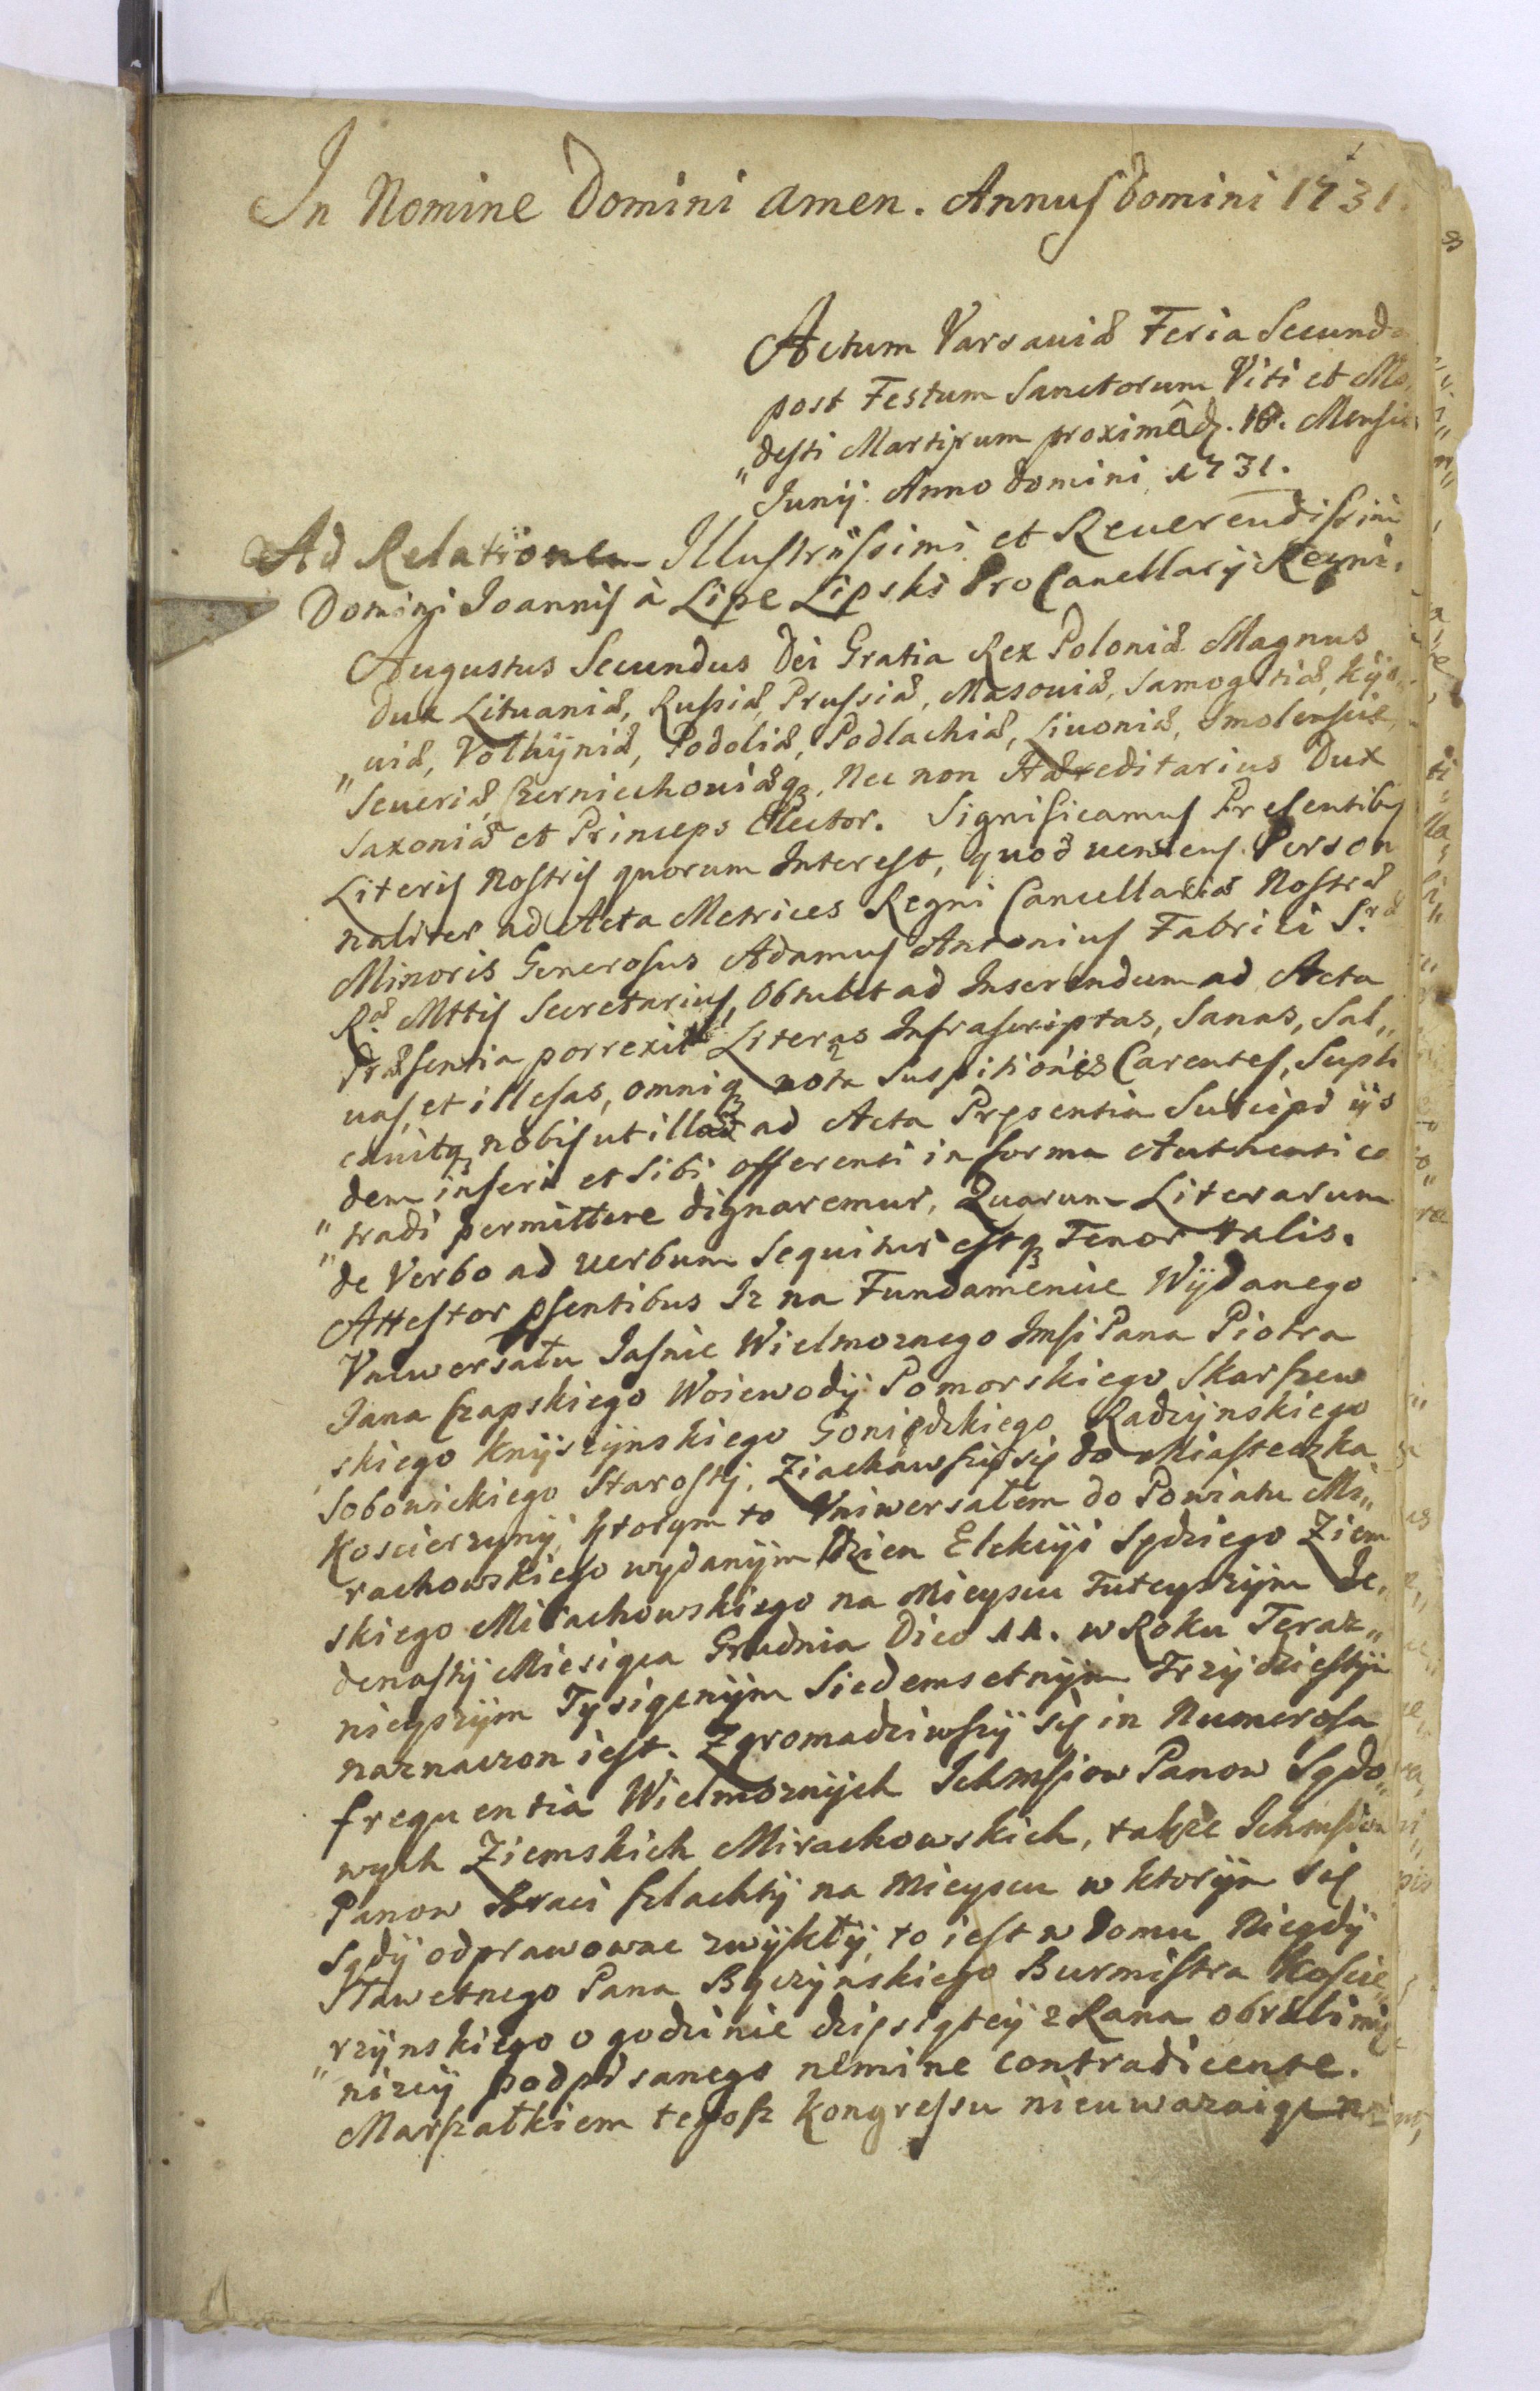 In Nomine Domini Amen. Annus Domini 1731.
Actum Varsaviæ Feria Secunda
post Festum Sanctorum Viti et Mo„
„desti Martirum proximâ d. 18. Mensis
Junij Anno Domini 1731.
Ad Relationem Illustrissimi et Reuerendissimi
Domini Joannis à Lipe Lipski ProCancellarij Regni.
Augustus Secundus Dei Gratia Rex Poloniæ Magnus
Dux Lituaniæ, Russiæ, Prussiæ, Masouiæ, Samogitiæ, Kijo„
„uiæ, Volhÿniæ, Podoliæ, Podlachiæ, Liuoniæ, Smolensciæ,
Seueriæ, Czerniechouiæq3, Nec non Hæreditarius Dux
Saxoniæ et Princeps Elector. Significamus Præsentibus
Literis Nostris quorum Interest, quod ueniens Person
naliter ad Acta Metrices Regni Cancellariæ Nostræ
Minoris Generosus Adamus Antonius Fabrici S.ræ
R.æ Mttis Secretarius, Obtulit ad Inserendum ad Acta
Præsentia porrexit Literas Infrascriptas, Sanas, Sal„
uas, et illesas, omniq3 nota Suspitionis Carentes, Supli
cauitq3 nobis ut illas ad Acta Præsentia Suscipi ijs
„dem inseri et Sibi offerenti in forma Authentica
„tradi permittere dignaremur, Quarum Literarum
de Verbo ad uerbum Sequitur estq3 Tenor talis.
Attestor psentibus Iz na Fundamencie Wÿdanego
Vniwersału Jasnie Wielmoznego Jmsi Pana Piotra
Jana Czapskiego Woiewodÿ Pomorskiego Skarszew
skiego Knÿszÿnskiego Goniędzkiego Radzÿnskiego
Sobowickiego Starostÿ, Ziachawszÿ się do Miasteczka
Koscierzynÿ, Ktorym to Vniwersałem do Powiatu Mi„
rachowskiego wydanÿm Dzien Elekcÿi Sędziego Ziem
skiego Mirachowskiego na Mieyscu Tuteyszÿm Je„
denastÿ Miesiąca Grudnia Dico 11. w Roku Teraz„
nieyszÿm Tysiącnÿm Siedemsetnÿm Trzÿdziestÿm
naznaczon iest. Zgromadziwszÿ się in Numerosa
frequentia Wielmoznÿch Ichmsciow Panow Sądo„
wych Ziemskich Mirachowskich, także Ichmsciow
Panow Braci Szlachtÿ na Mieyscu w ktorÿm się
Sądÿ odprawowac zwÿkłÿ, to iest w Domu Niegdÿ
Sławetnego Pana Bączÿnskiego Burmistra Koscie„
„rzÿnskiego o godzinie dziesiątey z Rana obrali mię
nizey podpisanego nemine contradicente.
Marszałkiem tegosz Kongressu nieuwazaiąc